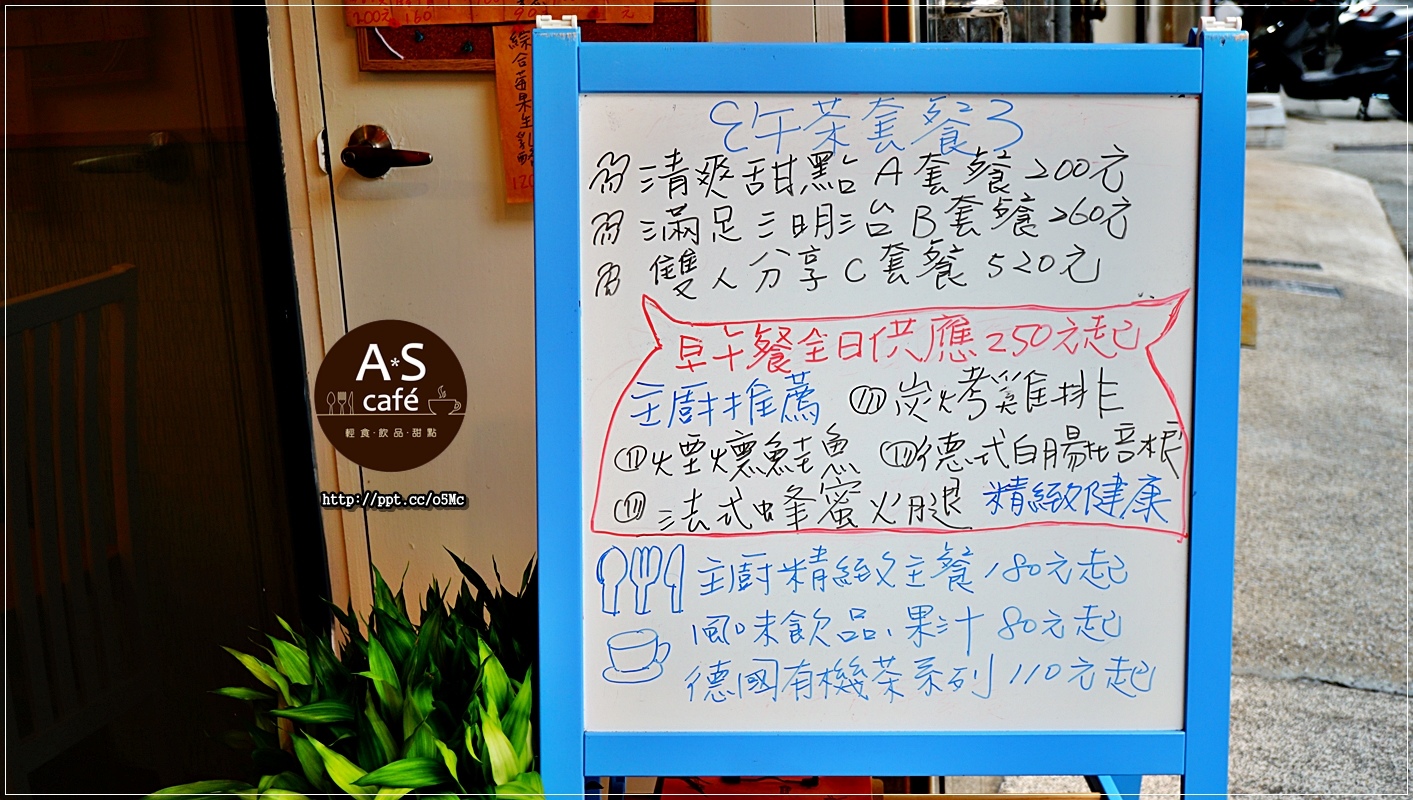 200元 160
綜合莓果生乳酪
120
午茶套餐
清爽甜點 A 套餐 200元
滿足三明治 B 套餐 260元
雙人分享 C 套餐 520元
早午餐全日供應 250元起
主廚推薦 炭烤雞排
煙燻鮭魚 德式白腸培根
法式蜂蜜火腿 精緻健康
主廚精緻主餐 180元起
風味飲品、果汁 80元起
德國有機茶系列 110元起
A*S
café
輕食·飲品·甜點
http://ppt.cc/o5Mc